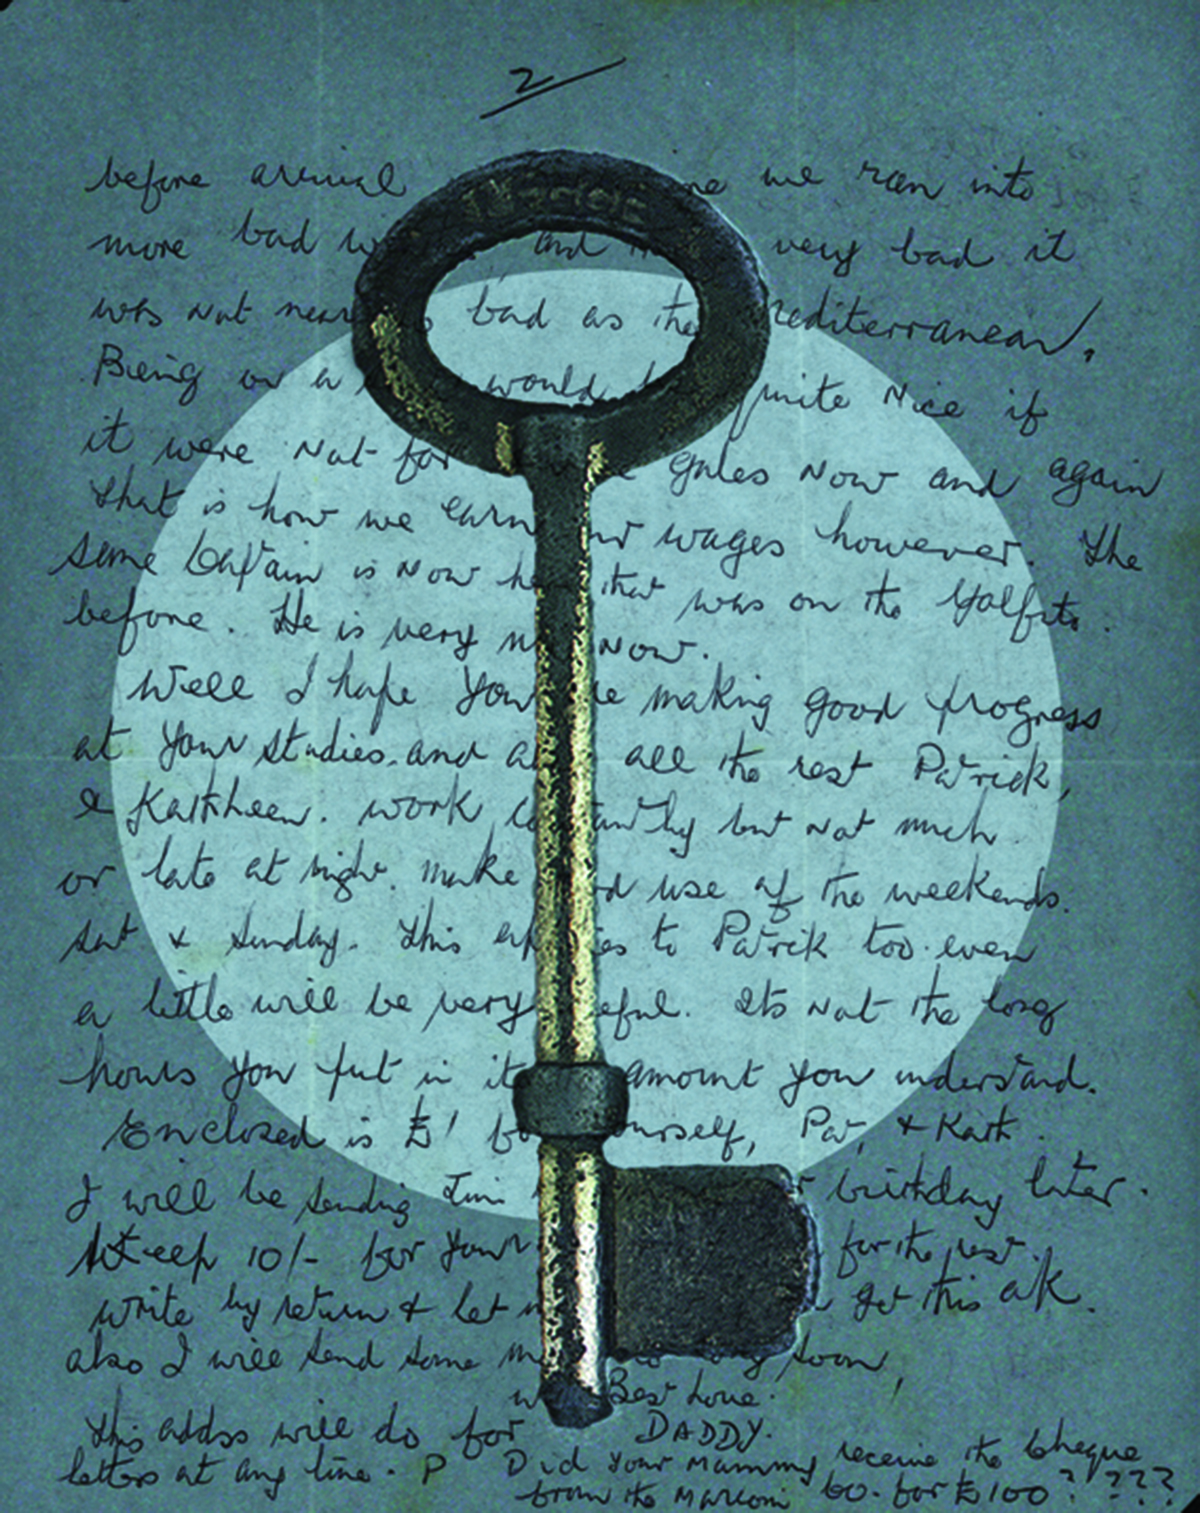 2
before arrival we ran into
more bad and very bad it
was not bad as the Mediterranean,
Being on a would quite nice if
it were not for gales now and again
that is how we earn our wages however. The
same Captain is now here that was on the
before. He is very now.
Well I hope you are making good progress
at your studies. and all the rest Patrick,
& Kathleen. work but not much
or late at night. make use of the weekends.
sat & Sunday. This applies to Patrick too. even
a little will be very useful. Its not the long
hours you put in it amount you understand.
Enclosed is £1 for yourself, Pat, & Kath.
I will be sending birthday later.
Keep 10/- for your for the rest.
write by return & let get this ok.
also I will send some soon,
with Best Love.
this addss will do for DADDY.
letters at any time. P Did your Mammy receive the cheque
from the Marconi Co. for £100? ???